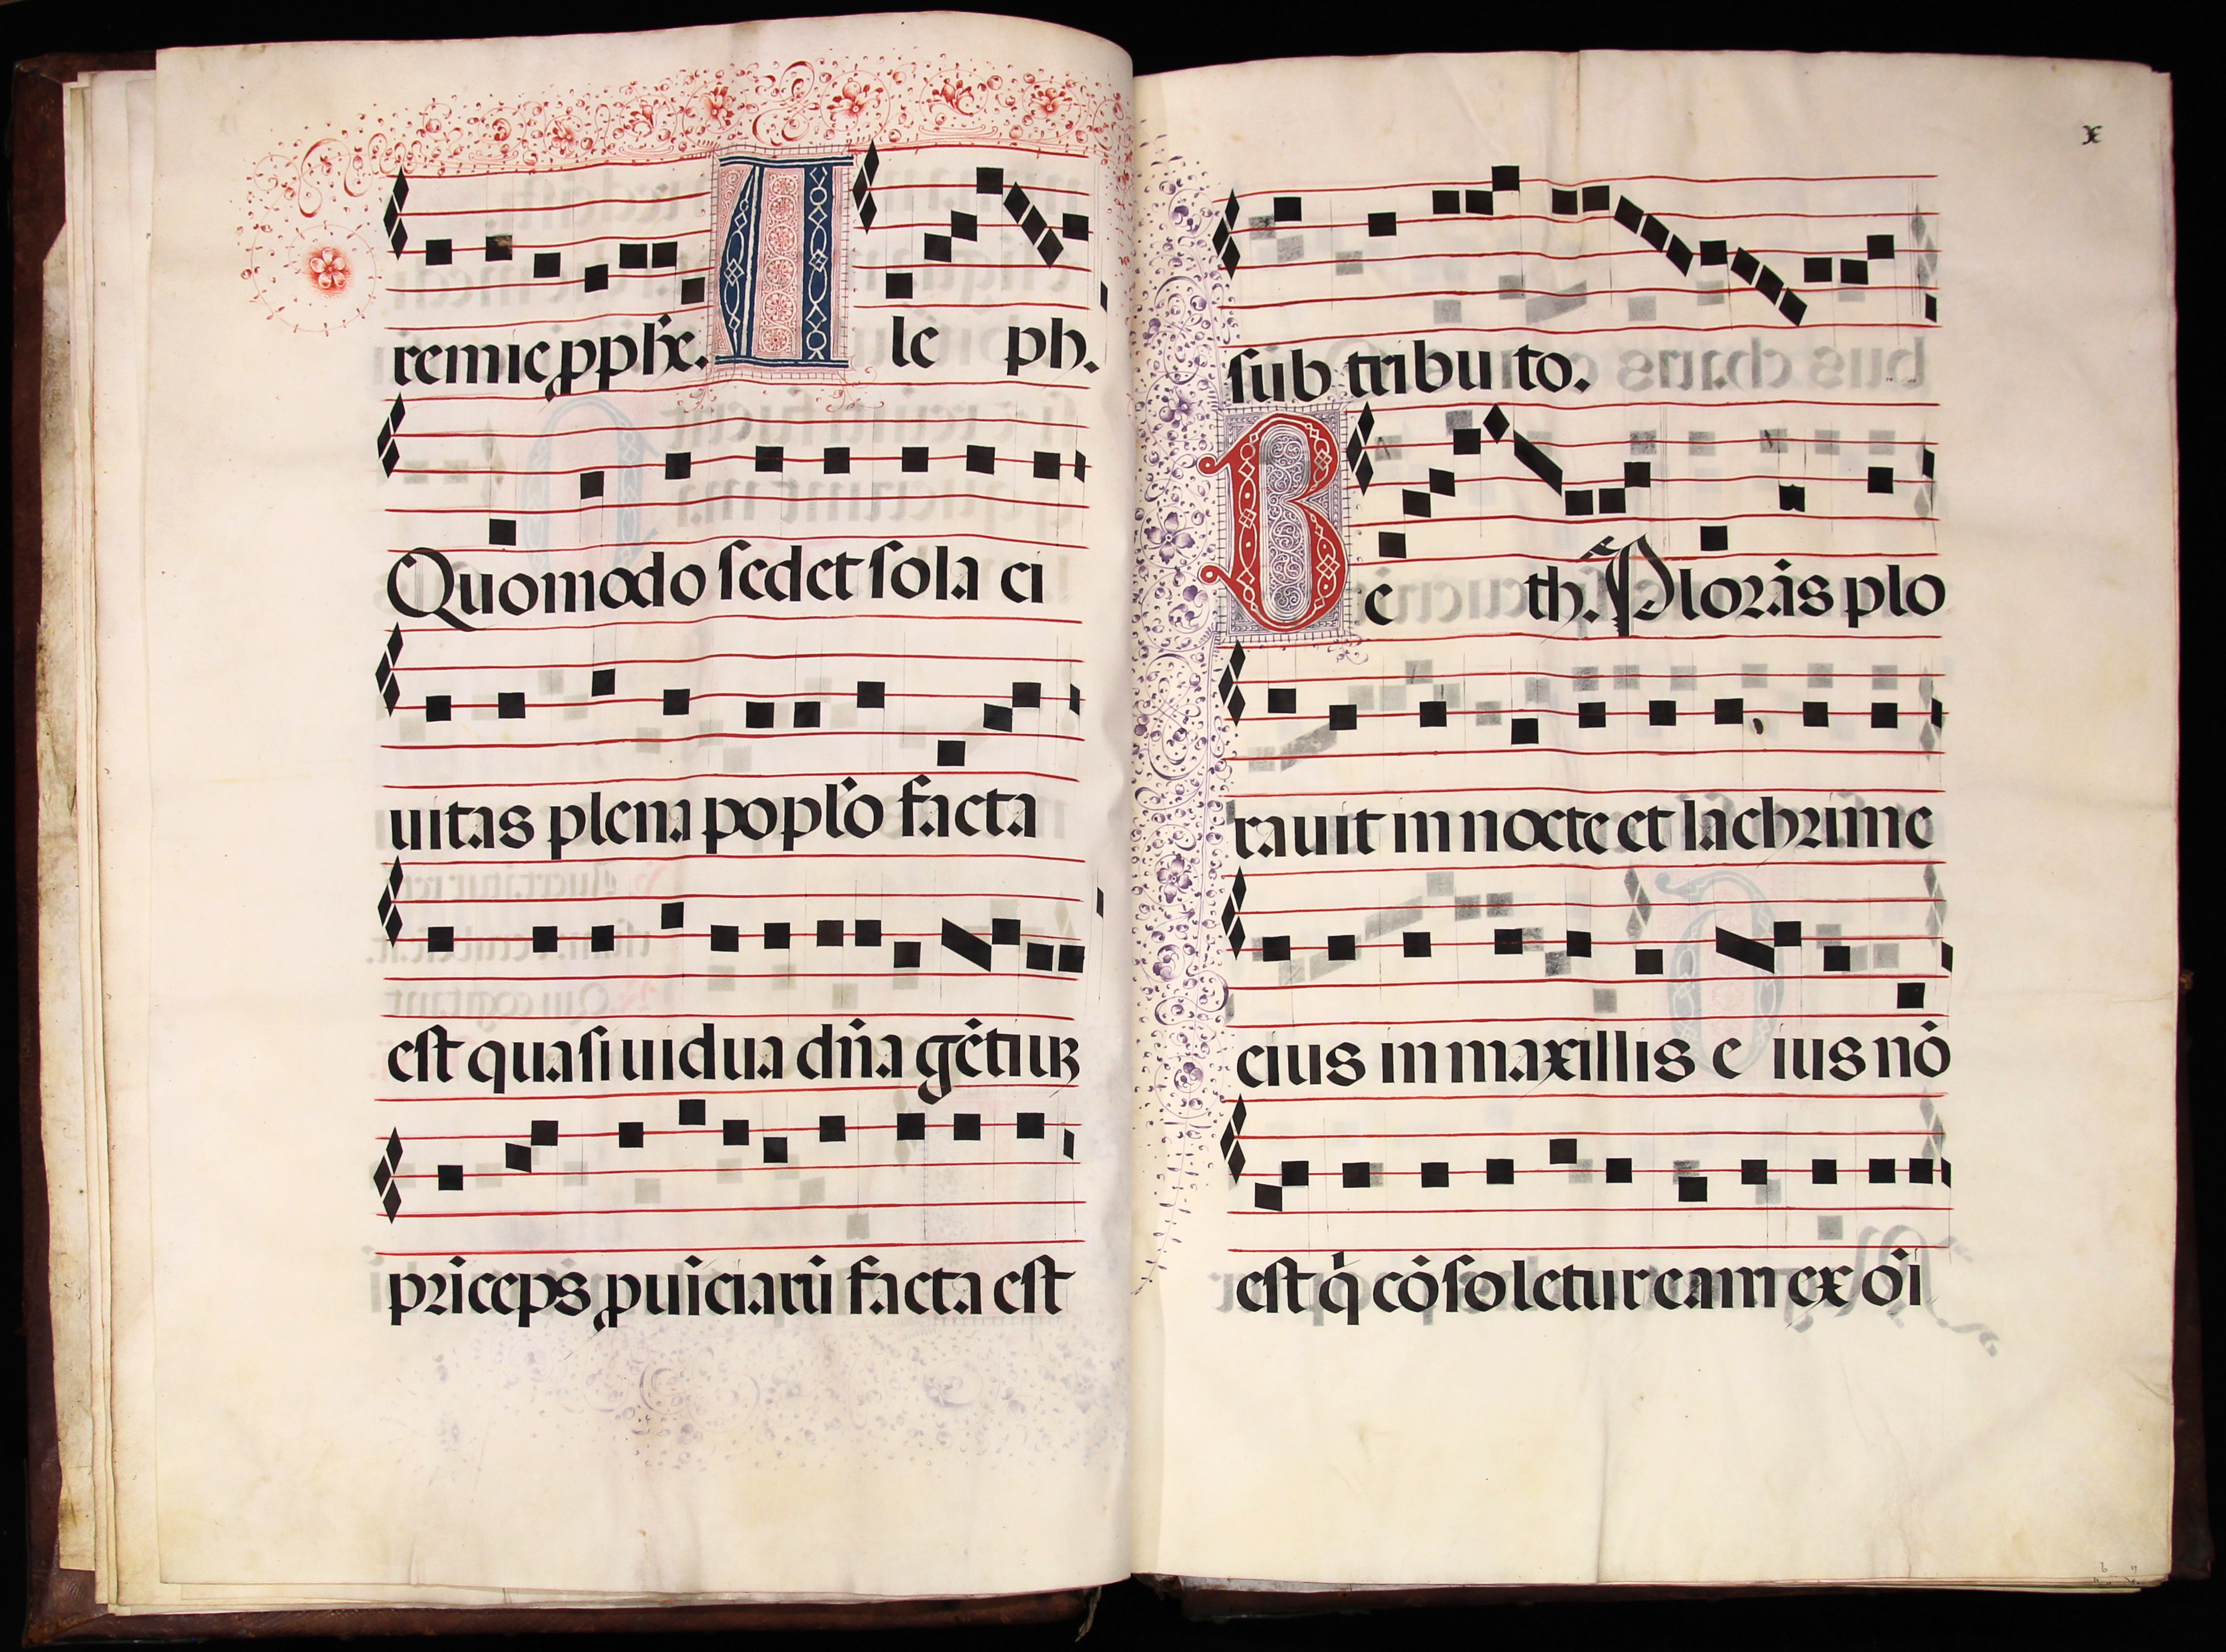 remie ꝓphe. Ale ph.
Quomodo sedet sola ci
uitas plena poplo facta
est quasi uidua dña gẽtiuꝫ
prĩceps ꝓuĩciarũ facta est
x
sub tributo.
Be th. Plorãs plo
rauit in nocte et lachrime
eius in maxillis eius nõ
est q̇ cõsoletur eam ex oĩ